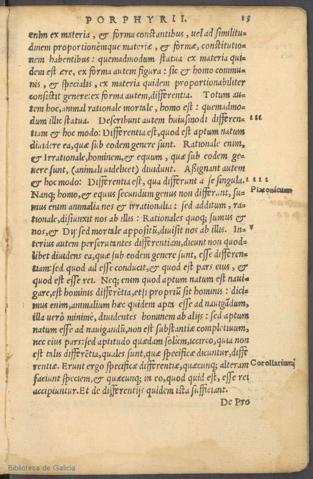 PORPHYRII. 15
enim ex materia, & forma constantibus, uel ad similitu-
dinem proportionémque materiæ, & formæ, constitutio-
nem habentibus: quemadmodum statua ex materia qui-
dem est ære, ex forma autem figura: sic & homo commu-
nis, & specialis, ex materia quidem proportionabiliter
consistit genere: ex forma autem, differentia. Totum au-
tem hoc, animal rationale mortale, homo est: quemadmo-
dum illic statua. Describunt autem huiusmodi differen- III
tiam & hoc modo: Differentia est, quod est aptum natum
diuidere ea, quæ sub eodem genere sunt. Rationale enim,
& Irrationale, hominem, & equum, quæ sub eodem ge-
nere sunt, (animali uidelicet) diuidunt. Assignant autem
& hoc modo: Differentia est, qua differunt à se singula. IIII
Nanq; homo, & equus secundùm genus non differunt, su- Platonicum
mus enim animalia nos & irrationalia: sed additum, ra-
tionale, disiunxit nos ab illis: Rationales quoq; sumus &
nos, & Dij sed mortale appositũ, diuisit nos ab illis. In- V
terius autem perscrutantes differentiam, dicunt non quod-
libet diuidens ea, quæ sub eodem genere sunt, esse differen-
tiam: sed quod ad esse conducit, & quod est pars eius, &
quod est esse rei. Neq; enim quod aptum natum est naui-
gare, est hominis differẽtia, etsi propriũ sit hominis: dici-
mus enim, animalium hæc quidem apta esse ad nauigãdum,
illa verò minimè, diuidentes hominem ab alijs: sed aptum
natum esse ad nauigandũ, non est substantiæ completiuum,
nec eius pars: sed aptitudo quædam solùm, iccirco, quia non
est talis differẽtia, quales sunt, quæ specificæ dicuntur, diffe
rentiæ. Erunt ergo specificæ differentiæ, quæcunq; alteram Corollarium
faciunt speciem, & quæcunq; in eo, quod quid est, esse rei
accipiuntur. Et de differentijs quidem ista sufficiant.
De Pro
Biblioteca de Galicia